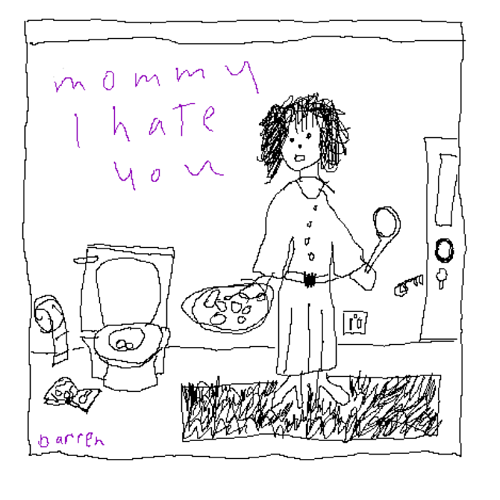 mommy
I hate
you
Darren